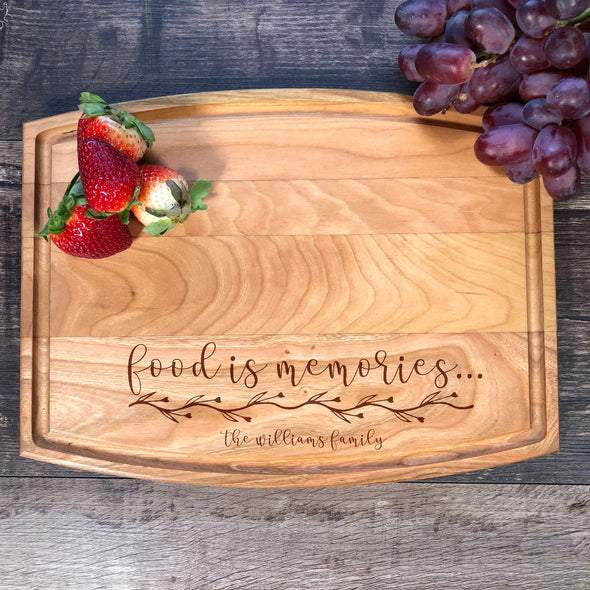 food is memories...
the williams family